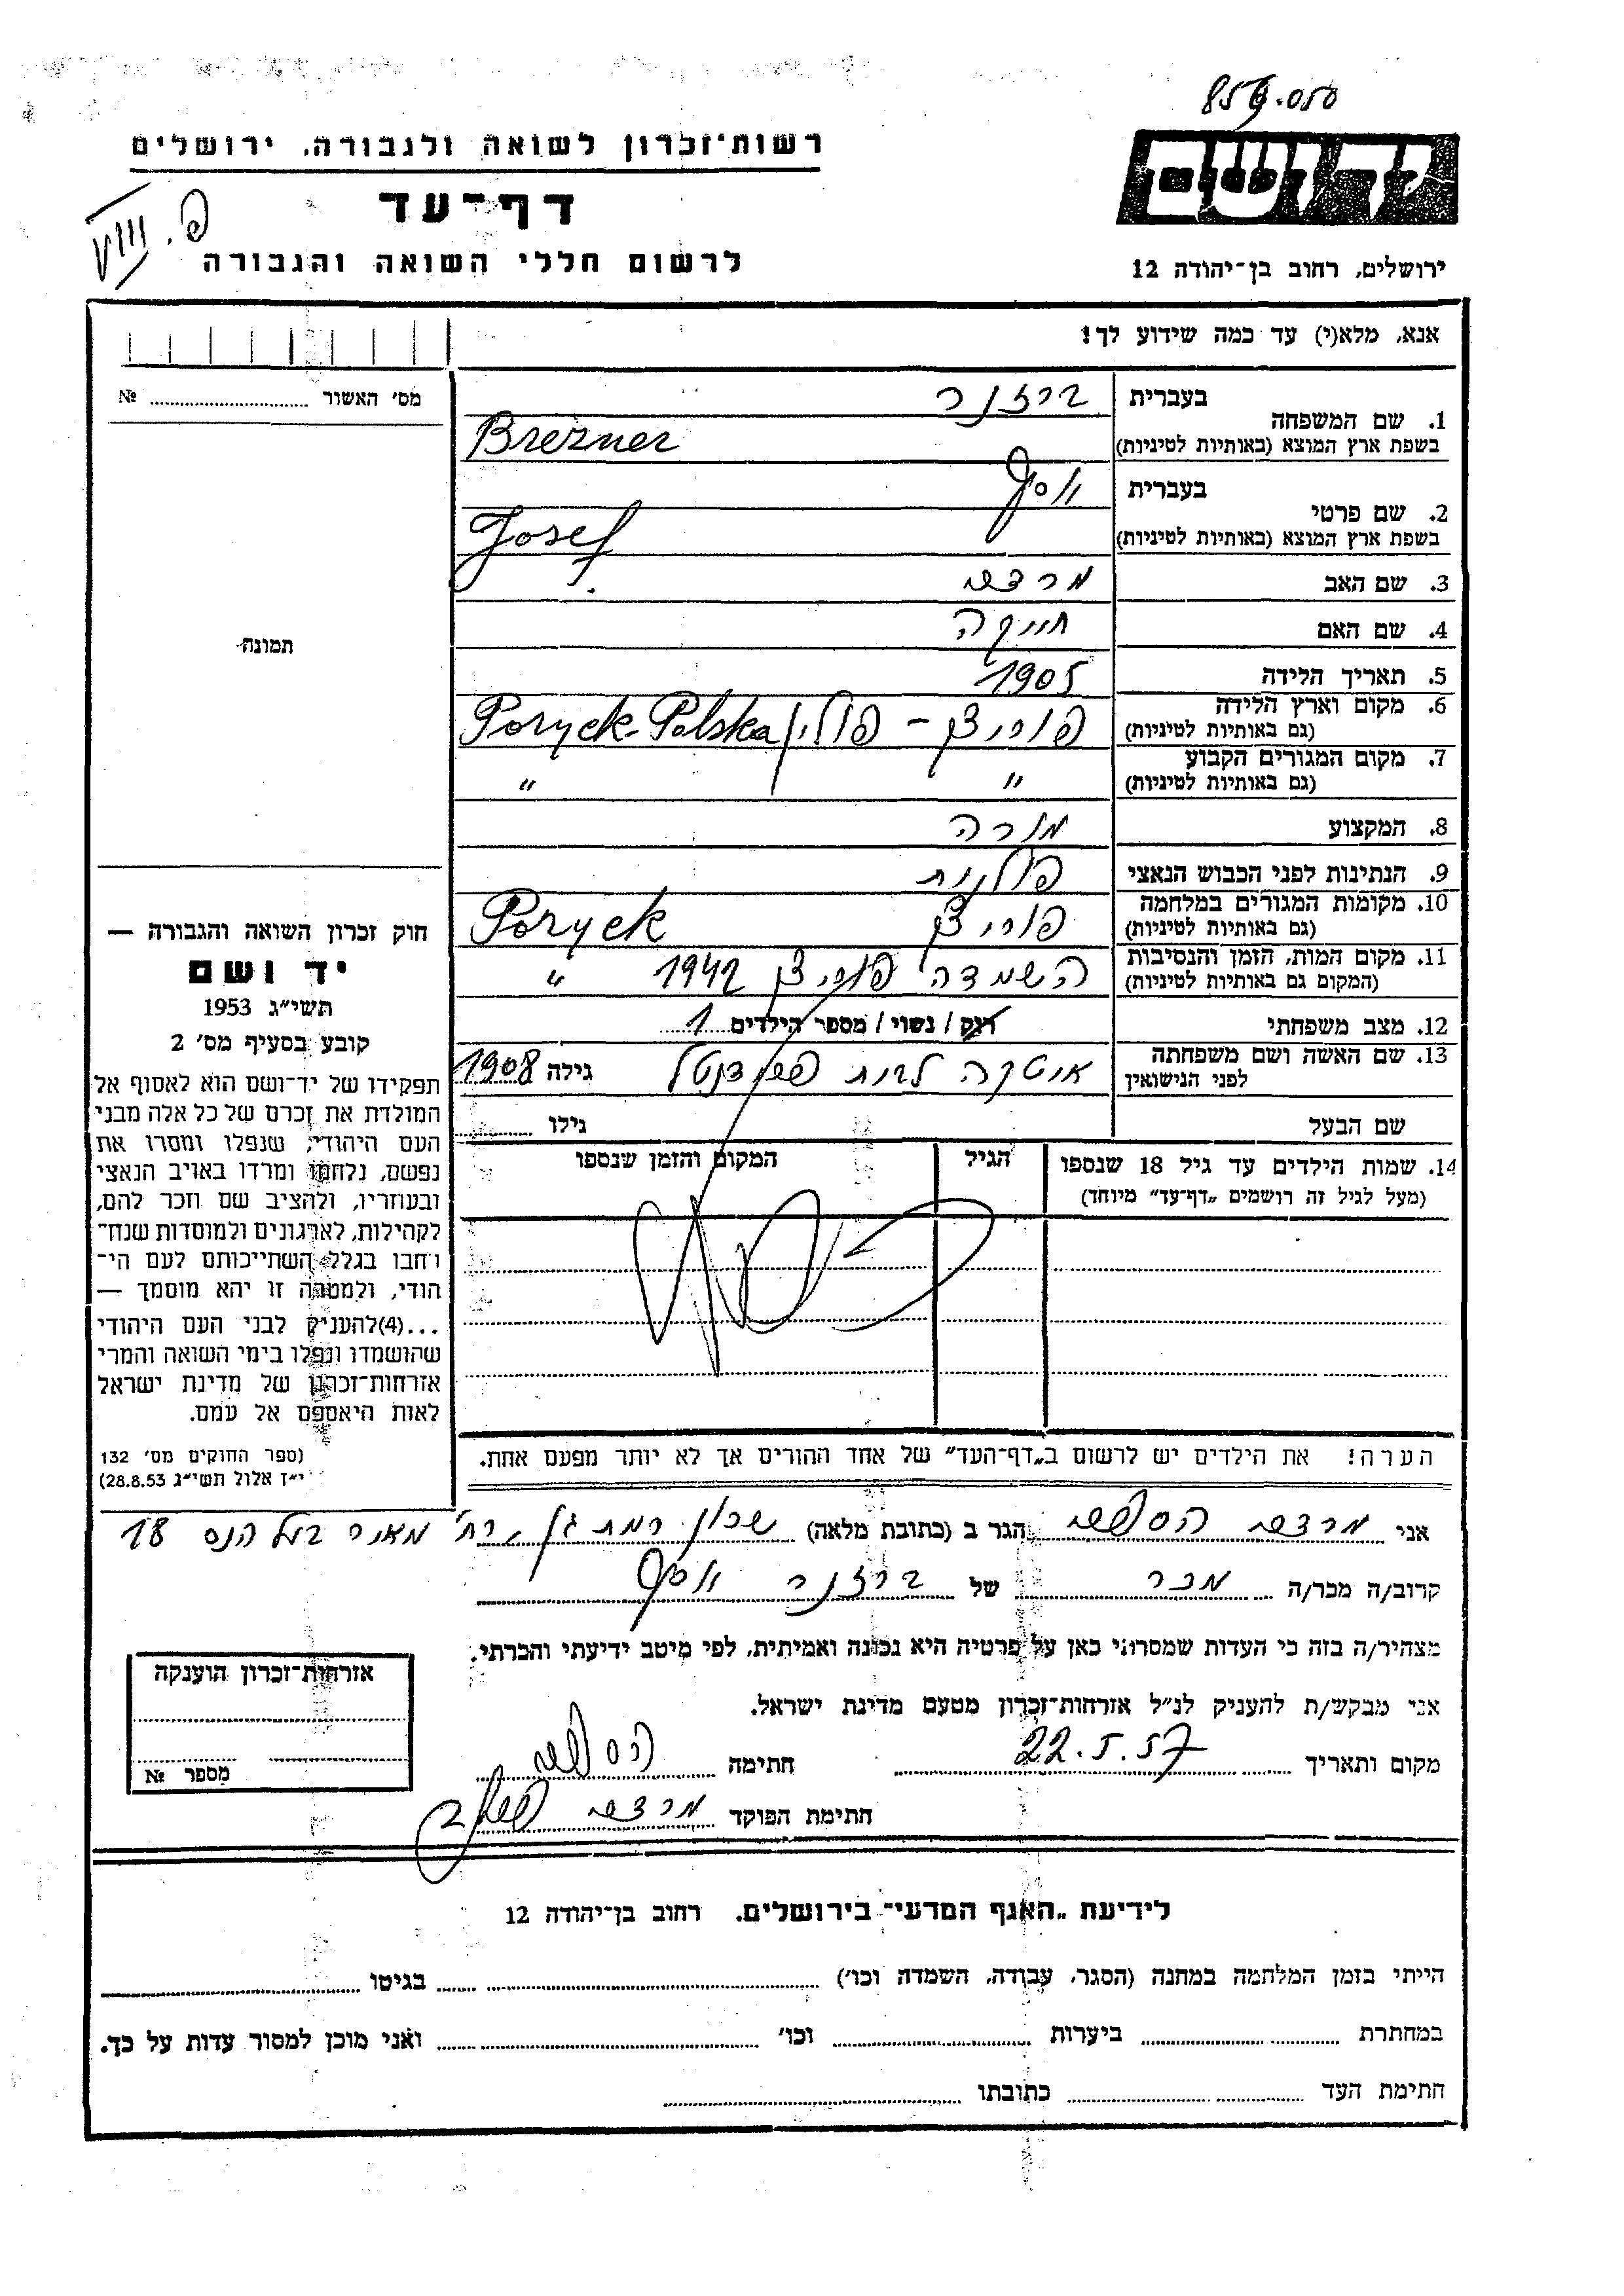 859.050
רשות־זכרון לשואה ולגבורה, ירושלים
יד ושם
דף־עד
פ. VIII
לרשום חללי השואה והגבורה
ירושלים, רחוב בן־יהודה 12
אנא, מלא(י) עד כמה שידוע לך!
מס׳ האשור № 
1. שם המשפחה
בעברית ברזנר
בשפת ארץ המוצא (באותיות לטיניות) Brezner
2. שם פרטי
בעברית יוסף
בשפת ארץ המוצא (באותיות לטיניות) Josef
3. שם האב מרדכי
4. שם האם חייקה
5. תאריך הלידה 1905
6. מקום וארץ הלידה
(גם באותיות לטיניות) פוריצק – פולין Poryck-Polska
7. מקום המגורים הקבוע
(גם באותיות לטיניות) " "
8. המקצוע מורה
9. הנתינות לפני הכבוש הנאצי פולנית
10. מקומות המגורים במלחמה
(גם באותיות לטיניות) פוריצק Poryck
11. מקום המות, הזמן והנסיבות
(המקום גם באותיות לטיניות) השמדה פוריצק 1942 "
12. מצב משפחתי רוק / נשוי / מספר הילדים 1
13. שם האשה ושם משפחתה
לפני הנישואין לבית גילה 1908
שם הבעל גילו
14. שמות הילדים עד גיל 18 שנספו הגיל המקום והזמן שנספו
(מעל לגיל זה רושמים „דף־עד” מיוחד)
הערה! את הילדים יש לרשום ב„דף־העד” של אחד ההורים אך לא יותר מפעם אחת.
תמונה
חוק זכרון השואה והגבורה —
יד ושם
תשי״ג 1953
קובע בסעיף מס׳ 2
תפקידו של יד־ושם הוא לאסוף אל
המולדת את זכרם של כל אלה מבני
העם היהודי, שנפלו ומסרו את
נפשם, נלחמו ומרדו באויב הנאצי
ובעוזריו, ולהציב שם וזכר להם,
לקהילות, לארגונים ולמוסדות שנח־
רחבו בגלל השתייכותם לעם הי־
הודי, ולמטרה זו יהא מוסמך —
...(4)להעניק לבני העם היהודי
שהושמדו ונפלו בימי השואה והמרי
אזרחות־זכרון של מדינת ישראל
לאות היאספם אל עמם.
(ספר החוקים מס׳ 132
י״ז אלול תשי״ג 28.8.53)
אני מרדכי הגר ב (כתובת מלאה) שכון רמת גן, רח׳ מאיר בעל הנס 18
קרוב/ה מכר/ה מכר של ברזנר יוסף
מצהיר/ה בזה כי העדות שמסרתי כאן על פרטיה היא נכונה ואמיתית, לפי מיטב ידיעתי והכרתי.
אני מבקש/ת להעניק לנ״ל אזרחות־זכרון מטעם מדינת ישראל.
מקום ותאריך 22.5.57 חתימה
חתימת הפוקד מרדכי
אזרחות־זכרון הוענקה
מספר №
לידיעת „האגף המדעי” בירושלים, רחוב בן־יהודה 12
הייתי בזמן המלחמה במחנה (הסגר, עבודה, השמדה וכו׳) בגיטו
במחתרת ביערות וכו׳ ואני מוכן למסור עדות על כך.
חתימת העד כתובתו